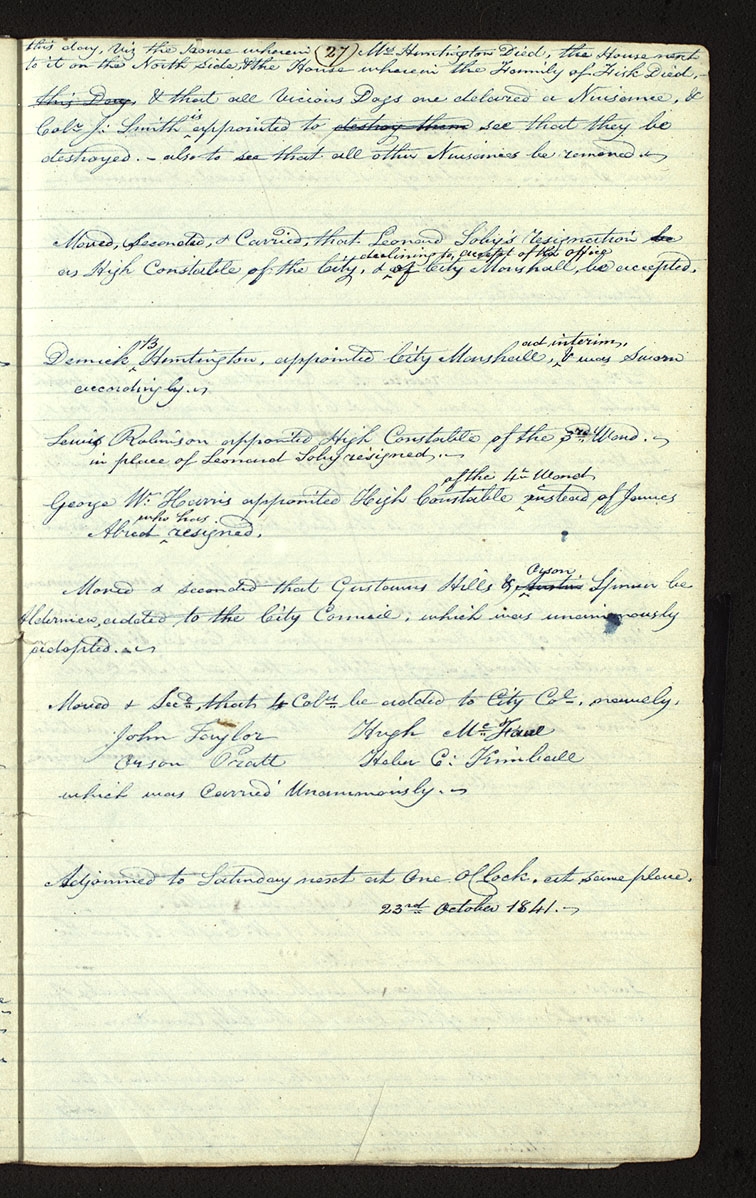 this day, viz the House wherein (27) Mrs Huntington Died, the House next
to it on the North side, & the House wherein the Family of Fisk Died,
this Day, & that all Vicious Dogs are delared a Nuisance, &
Colr. J: Smith is appointed to destroy them see that they be
destroyed. – also to see that all other Nuisances be removed.
Moved, Seconded, & Carried, that Leonard Soby's resignation be
declining to accept of the office
as High Constable of the City, & of City Marshall, be accepted.
ad interim,
Demick B Huntington, appointed City Marshall, & was Sworn
accordingly.
Lewis Robinson appointed High Constable of the 3rd Ward.
in place of Leonard Soby resigned.
of the 4th Ward
George W. Harris appointed High Constable instead of James
who has
Alred resigned.
Orson
Moved & seconded that Gustavus Hills & Austin Spencer be
Aldermen, added to the City Council, which was unanimously
adopted.
Moved & Secd, that 4 Colrs be added to City Col, namely,
John Taylor Hugh Mc Fall
Orson Pratt Heber C: Kimball
which was Carried Unanimously.
Adjourned to Saturday next at One O'Clock, at same place.
23rd October 1841.